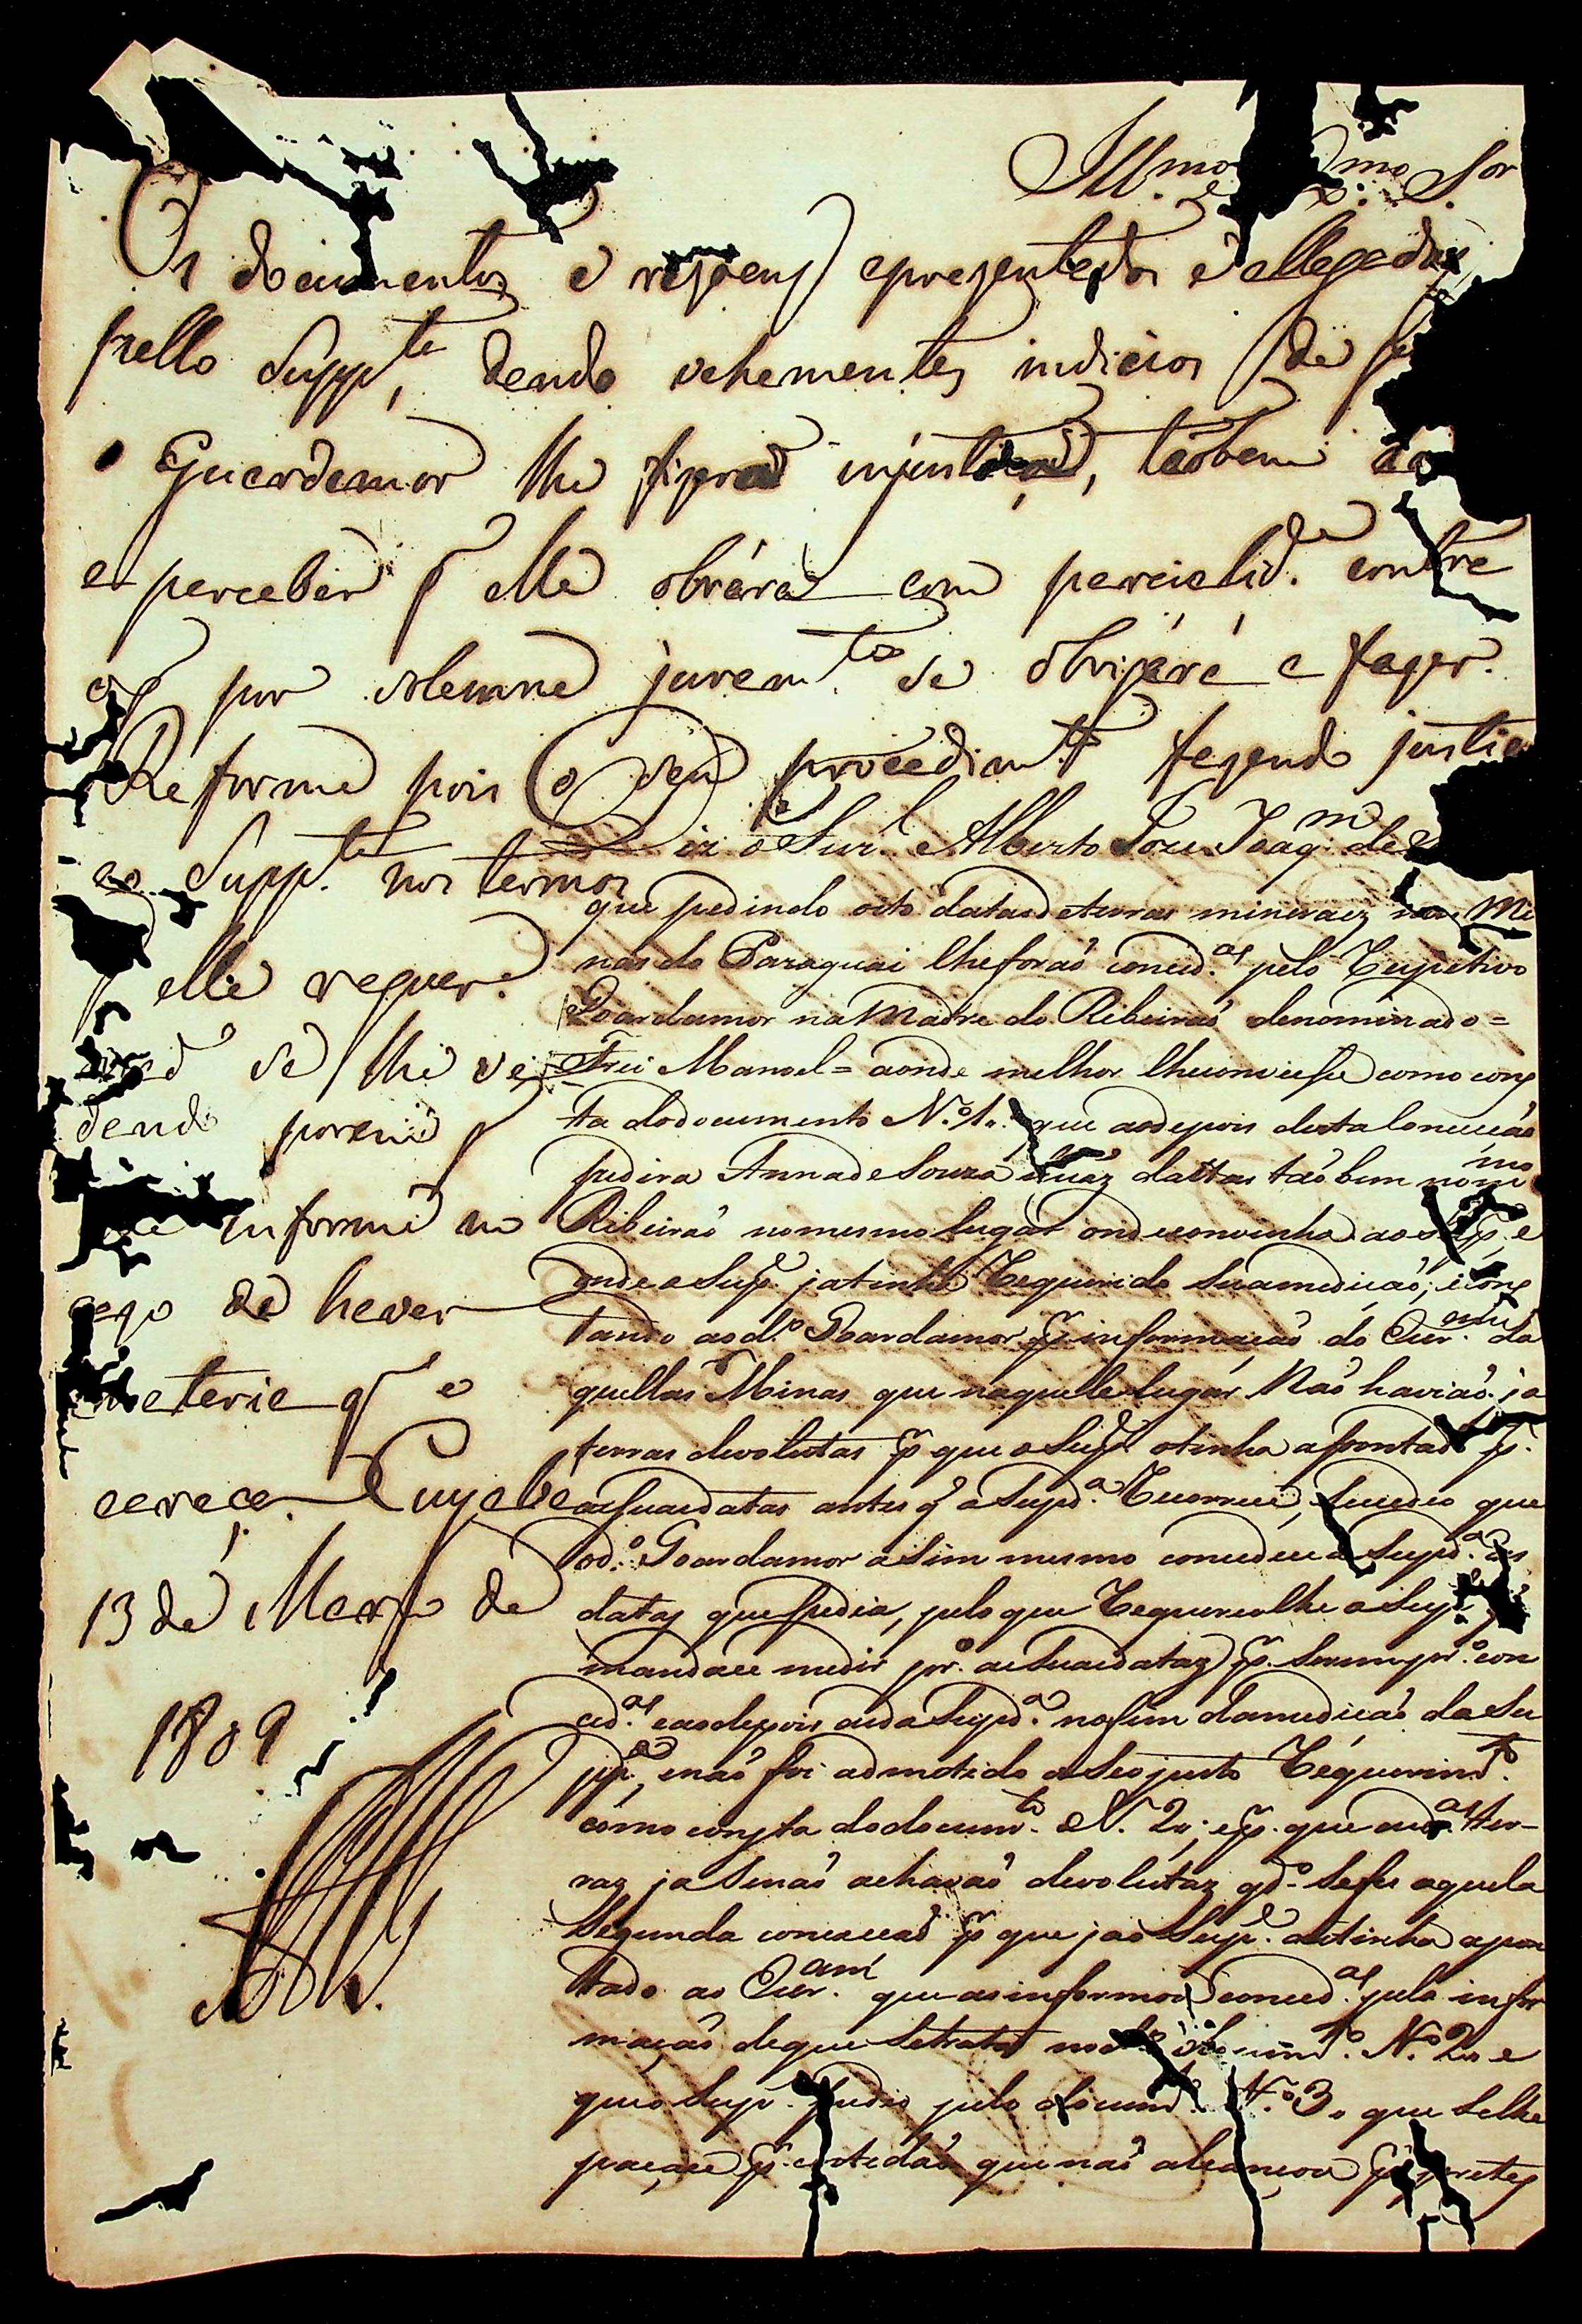 Ill.mo e mo Sor
Os documentos e rezoens aprezentados e allegados
pello Supp.te, dendo vehementes indicios de
Guardamor lhe fizera injustiça, taobem
a perceber q elle obrára com parcialid.e contra
oq por solemne juram.to se obrigára a fazer.
Reforme pois o seu procedim.to fazendo justiça
ao Supp.te nos termos
q elle requer.
se lhe
dendo porem q
me informe no
cazo de haver
materia q o
careça. Cuyabá
13 de Março de
1809
Diz o Fur.l Alberto Joze Joaq.m de
que pedindo oito datas de terras mineraez nas Mi
nas do Paraguai lhe foraõ conced.as pelo Respetivo
Goardamor na Madre do Ribeiraõ denominado =
Frei Manoel = aonde melhor lhe conviese como cons
ta do documento N.o 1.o que aodepois desta Conceçaõ
pedira Anna de Souza duaz dattas taõbem no m.mo
Ribeiraõ no mesmo lugar onde convinha ao Sup.e e
onde o Sup.e ja tinha Requerido sua mediçaõ; e cons
tando ao d.o Goardamor p informaçaõ do Escr.am da
quellas Minas que naquele lugar Naõ haviaõ ja
terras devolutas p que o Sup.e o tinha apontado p.
as suas datas antes q a Supd.a Recorrece, sucedeo que
o d.o Goardamor asim mesmo concedeu a Supd.a as
datas que pedia, pelo que Requereolhe o Sup.e
mandace medir pr.o as suas datas p. serem pr.o con
ced.as e aodepois as da Supd.a no fim da mediçaõ da Su
pp.e, e naõ foi admetido o seo justo Requerim.to
como consta do docum.to N. 2.o; e p. que as d.as ter-
ras ja se naõ achavaõ devolutaz qd.o se fes aquela
segunda conceçaõ p que ja o Sup.e as tinha apon
tado ao Escr.am que as informou conced.as pela infor
maçaõ de que se trata no docum.to N.o 2.o e
que o Sup.e pedio pelo docum.to N.o 3.o que se lhe
paçace p. certidaõ que naõ alcançou p. pretes